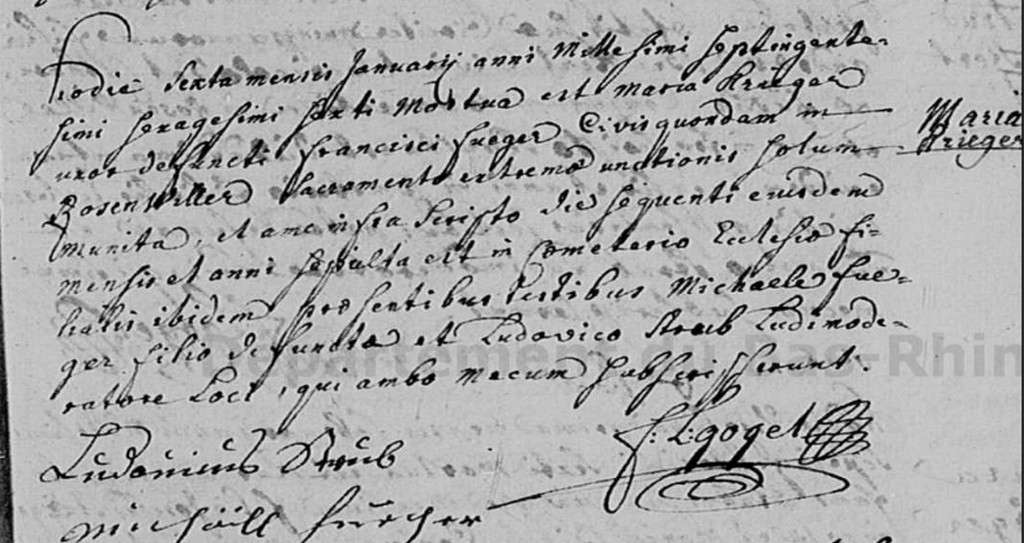 Hodie sexta mensis Januarij anni Millesimi septingente-
simi sexagesimi sexti Mortua est Maria Krieger
uxor defuncti Francisci fueger Civis quondam in
Rosenwiller sacramento extremæ unctionis solum
munita, et a me infra scripto die sequenti eiusdem
mensis et anni sepulta est in Cœmeterio Ecclesiæ fi-
lialis ibidem præsentibus testibus Michaele fue-
ger filio defunctæ et Ludovico Straub Ludimode-
ratore Loci, qui ambo mecum subscripserunt.
Maria
Krieger
F: L: gogel
Ludovicus Straub
Michaell fuecher
Département du Bas-Rhin